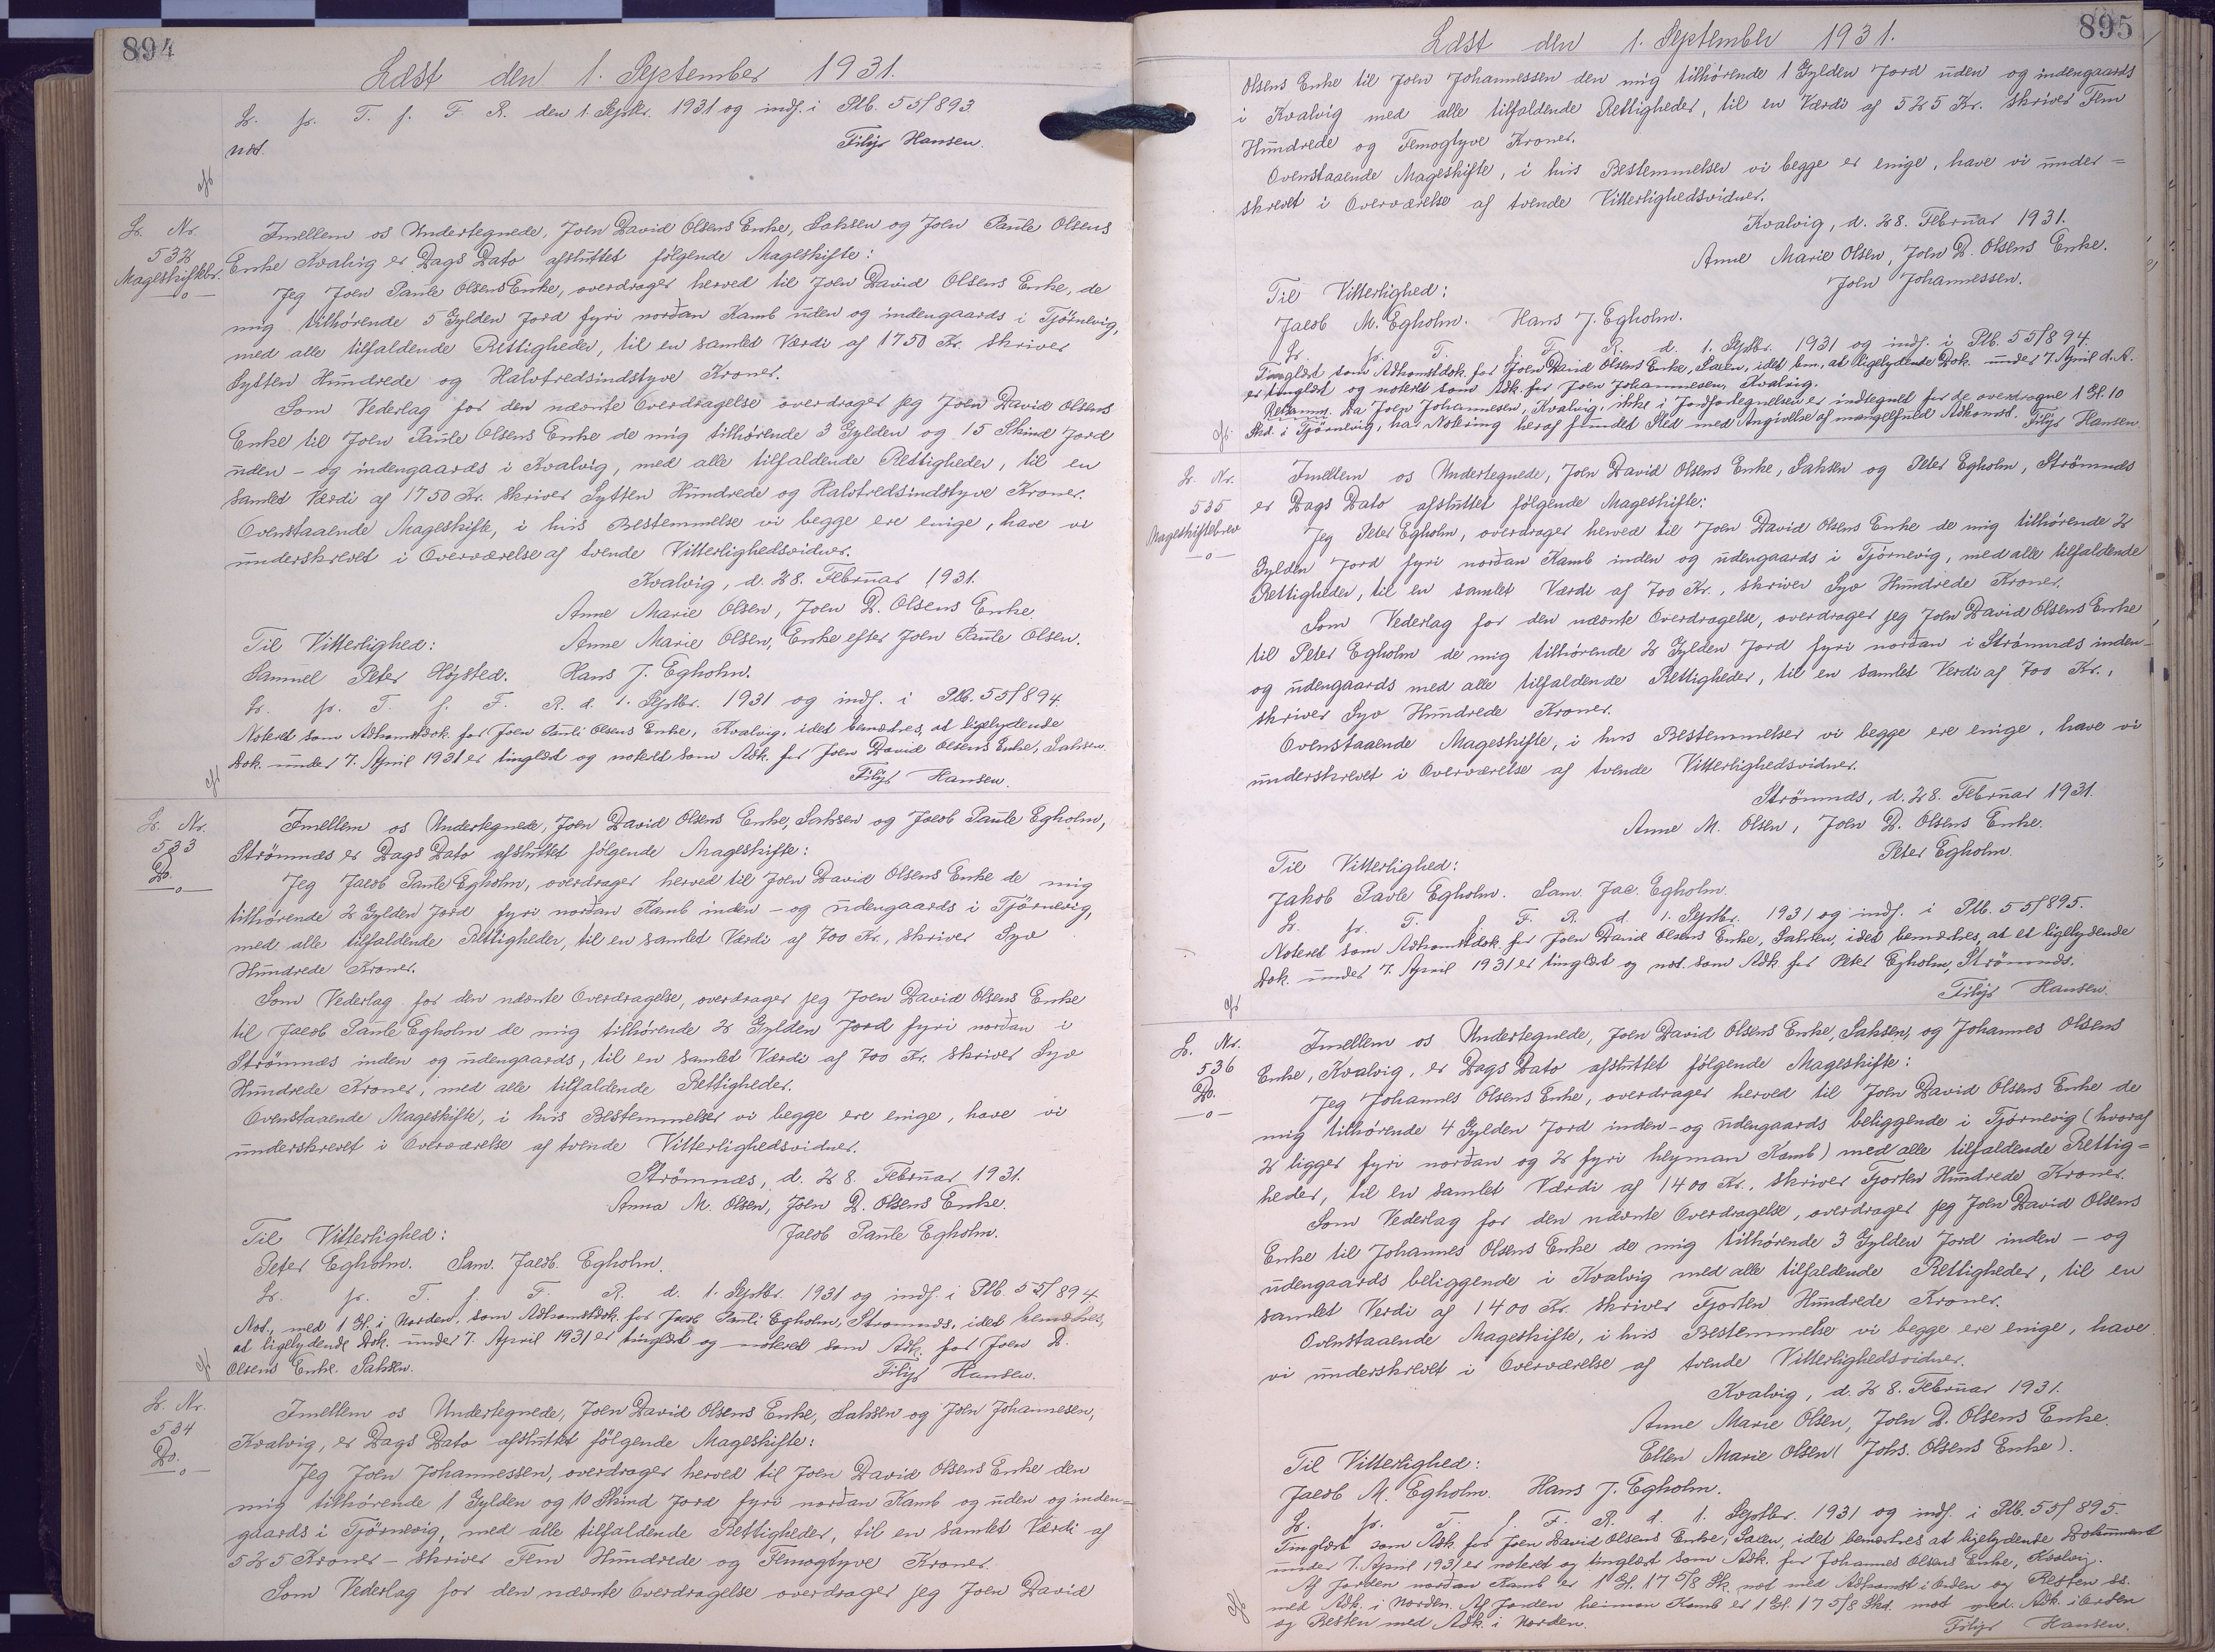 894
Læst den 1. September 1931.
L. p. T. f. F. R. den 1. Septbr. 1931 og indf. i Ptb. 55/893
not.
Filip Hansen.
L. Nr.
532
Mageskiftebr.
Imellem os Undertegnede, Joen David Olsens Enke, Saksen og Joen Paule Olsens
Enke Kvalvig er Dags Dato afsluttet følgende Mageskifte:
Jeg Joen Paule Olsens Enke, overdrager herved til Joen David Olsens Enke, de
mig tilhørende 5 Gylden Jord fyri norðan Kamb uden og indengaards i Tjörnevig,
med alle tilfaldende Rettigheder, til en samlet Værdi af 1750 Kr. skriver
Sytten Hundrede og Halvtredsindstyve Kroner.
Som Vederlag for den nævnte Overdragelse overdrager jeg Joen David Olsens
Enke til Joen Paule Olsens Enke de mig tilhørende 3 Gylden og 15 Skind Jord
uden - og indengaards i Kvalvig, med alle tilfaldende Rettigheder, til en
samlet Værdi af 1750 Kr. skriver Sytten Hundrede og Halvtredsindstyve Kroner.
Ovenstaaende Mageskifte, i hvis Bestemmelse vi begge ere enige, have vi
underskrevet i Overværelse af tvende Vitterlighedsvidner.
Kvalvig, d. 28. Februar 1931.
Anne Marie Olsen, Joen D. Olsens Enke.
Til Vitterlighed: Anne Marie Olsen, Enke efter Joen Paule Olsen.
Samuel Peter Højsted. Hans J. Egholm.
L. p. T. f. F. R. d. 1. Septbr. 1931 og indf. i Ptb. 55/894.
Noteret som Adkomstdok. for Joen Pauli Olsens Enke, Kvalvig, idet bemærkes, at ligelydende
Dok. under 7. April 1931 er tinglæst og noteret som Adk. for Joen David Olsens Enke, Saksen.
Filip Hansen.
L. Nr.
533
Do.
Imellem os Undertegnede, Joen David Olsens Enke, Saksen og Jacob Paule Egholm,
Strömnæs er Dags Dato afsluttet følgende Mageskifte:
Jeg Jacob Paule Egholm, overdrager herved til Joen David Olsens Enke de mig
tilhørende 2 Gylden Jord fyri norðan Kamb inden - og udengaards i Tjörnevig,
med alle tilfaldende Rettigheder, til en samlet Værdi af 700 Kr., skriver Syv
Hundrede Kroner.
Som Vederlag for den nævnte Overdragelse, overdrager jeg Joen David Olsens Enke
til Jacob Paule Egholm de mig tilhørende 2 Gylden Jord fyri norðan i
Strömnæs inden og udengaards, til en samlet Værdi af 700 Kr. skriver Syv
Hundrede Kroner, med alle tilfaldende Rettigheder.
Ovenstaaende Mageskifte, i hvis Bestemmelser vi begge ere enige, have vi
underskrevet i Overværelse af tvende Vitterlighedsvidner.
Strömnæs, d. 28. Februar 1931.
Anna M. Olsen, Joen D. Olsens Enke.
Til Vitterlighed: Jacob Paule Egholm.
Peter Egholm. Sam. Jacob. Egholm.
L. p. T. f. F. R. d. 1. Septbr. 1931 og indf. i Ptb. 55/894.
Not., med 1 Gl. i Norden, som Adkomstdok. for Jacob Pauli Egholm, Strømnæs, idet bemærkes,
at ligelydende Dok. under 7. April 1931 er tinglæst og noteret som Adk. for Joen D.
Olsens Enke. Saksen. Filip Hansen.
L. Nr.
534
Do.
Imellem os Undertegnede, Joen David Olsens Enke, Saksen og Joen Johannesen,
Kvalvig, er Dags Dato afsluttet følgende Mageskifte:
Jeg Joen Johannessen, overdrager herved til Joen David Olsens Enke den
mig tilhørende 1 Gylden og 10 Skind Jord fyri norðan Kamb og uden og inden=
gaards i Tjörnevig, med alle tilfaldende Rettigheder, til en samlet Værdi af
525 Kroner - skriver Fem Hundrede og Femogtyve Kroner.
Som Vederlag for den nævnte Overdragelse overdrager jeg Joen David
895
Læst den 1. September 1931.
Olsens Enke til Joen Johannessen den mig tilhørende 1 Gylden Jord uden og indengaards
i Kvalvig med alle tilfaldende Rettigheder, til en Værdi af 525 Kr. skriver Fem
Hundrede og Femogtyve Kroner.
Ovenstaaende Mageskifte, i hvis Bestemmelser vi begge er enige, have vi under=
skrevet i Overværelse af tvende Vitterlighedsvidner.
Kvalvig, d. 28. Februar 1931.
Anne Marie Olsen, Joen D. Olsens Enke.
Joen Johannessen.
Til Vitterlighed:
Jacob M. Egholm. Hans J. Egholm.
L. p. T. f. F. R. d. 1. Septbr. 1931 og indf. i Ptb. 55/894.
Tinglæst som Adkomstdok. for Joen David Olsens Enke, Saxen, idet bm., at ligelydende Dok. under 7. April d. A.
er tinglæst og noteret som Adk. for Joen Johannessen, Kvalvig.
Retsanm. Da Joen Johannesen, Kvalvig, ikke i Jordfortegnelsen er indtegnet for de overdragne 1 Gl. 10
Skd. i Tjørnevig, har Notering heraf fundet Sted med Angivelse af mangelfuld Adkomst. Filip Hansen.
L. Nr.
535
Mageskiftebrev
Imellem os Undertegnede, Joen David Olsens Enke, Saksen og Peter Egholm, Strömnæs
er Dags Dato afsluttet følgende Mageskifte:
Jeg Peter Egholm, overdrager herved til Joen David Olsens Enke de mig tilhørende 2
Gylden Jord fyri norðan Kamb inden og udengaards i Tjörnevig, med alle tilfaldende
Rettigheder, til en samlet Værdi af 700 Kr., skriver Syv Hundrede Kroner.
Som Vederlag for den nævnte Overdragelse, overdrager jeg Joen David Olsens Enke
til Peter Egholm de mig tilhørende 2 Gylden Jord fyri norðan i Strömnæs inden-
og udengaards med alle tilfaldende Rettigheder, til en samlet Verdi af 700 Kr.,
skriver Syv Hundrede Kroner.
Ovenstaaende Mageskifte, i hvis Bestemmelser vi begge ere enige, have vi
underskrevet i Overværelse af tvende Vitterlighedsvidner.
Strömnæs, d. 28. Februar 1931.
Anne M. Olsen, Joen D. Olsens Enke.
Peter Egholm.
Til Vitterlighed:
Jakob Pavle Egholm. Sam. Jac. Egholm.
L. p. T. f. F. R. d. 1. Septbr. 1931 og indf. i Ptb. 55/895.
Noteret som Adkomstdok. for Joen David Olsens Enke, Saksen, idet bemærkes, at et ligelydende
Dok. under 7. April 1931 er tinglæst og not. som Adk for Peter Egholm, Strömnæs.
Filip Hansen.
L. Nr.
536
Do.
Imellem os Undertegnede, Joen David Olsens Enke, Saksen, og Johannes Olsens
Enke, Kvalvig, er Dags Dato afsluttet følgende Mageskifte:
Jeg Johannes Olsens Enke, overdrager herved til Joen David Olsens Enke de
mig tilhørende 4 Gylden Jord inden - og udengaards beliggende i Tjørnevig (hvoraf
2 ligger fyri norðan og 2 fyri heyman Kamb) med alle tilfaldende Rettig=
heder, til en samlet Værdi af 1400 Kr., skriver Fjorten Hundrede Kroner.
Som Vederlag for den nævnte Overdragelse, overdrager jeg Joen David Olsens
Enke til Johannes Olsens Enke de mig tilhørende 3 Gylden Jord inden - og
udengaards beliggende i Kvalvig med alle tilfaldende Rettigheder, til en
samlet Verdi af 1400 Kr. skriver Fjorten Hundrede Kroner.
Ovenstaaende Mageskifte, i hvis Bestemmelse vi begge ere enige, have
vi underskrevet i Overværelse af tvende Vitterlighedsvidner.
Kvalvig, d. 28. Februar 1931.
Anne Marie Olsen, Joen D. Olsens Enke.
Til Vitterlighed: Ellen Marie Olsen (Johs. Olsens Enke).
Jacob M. Egholm. Hans J. Egholm.
L. p. T. f. F. R. d. 1. Septbr. 1931 og indf. i Ptb. 55/895.
Tinglæst som Adk. for Joen David Olsens Enke, Saxen, idet bemærkes at ligelydende Dokument
under 7. April 1931 er noteret og tinglæst som Adk. for Johannes Olsens Enke, Kvalvig.
Af Jorden norðan Kamb er 1 Gl. 17 5/8 Sk. not med Adkomst i Orden og Resten
med Adk. i Norden. Af Jorden heiman Kamb er 1 Gl. 17 5/8 Skd. not med. Adk. i Orden
og Resten med Adk. i Norden.
Filip Hansen.